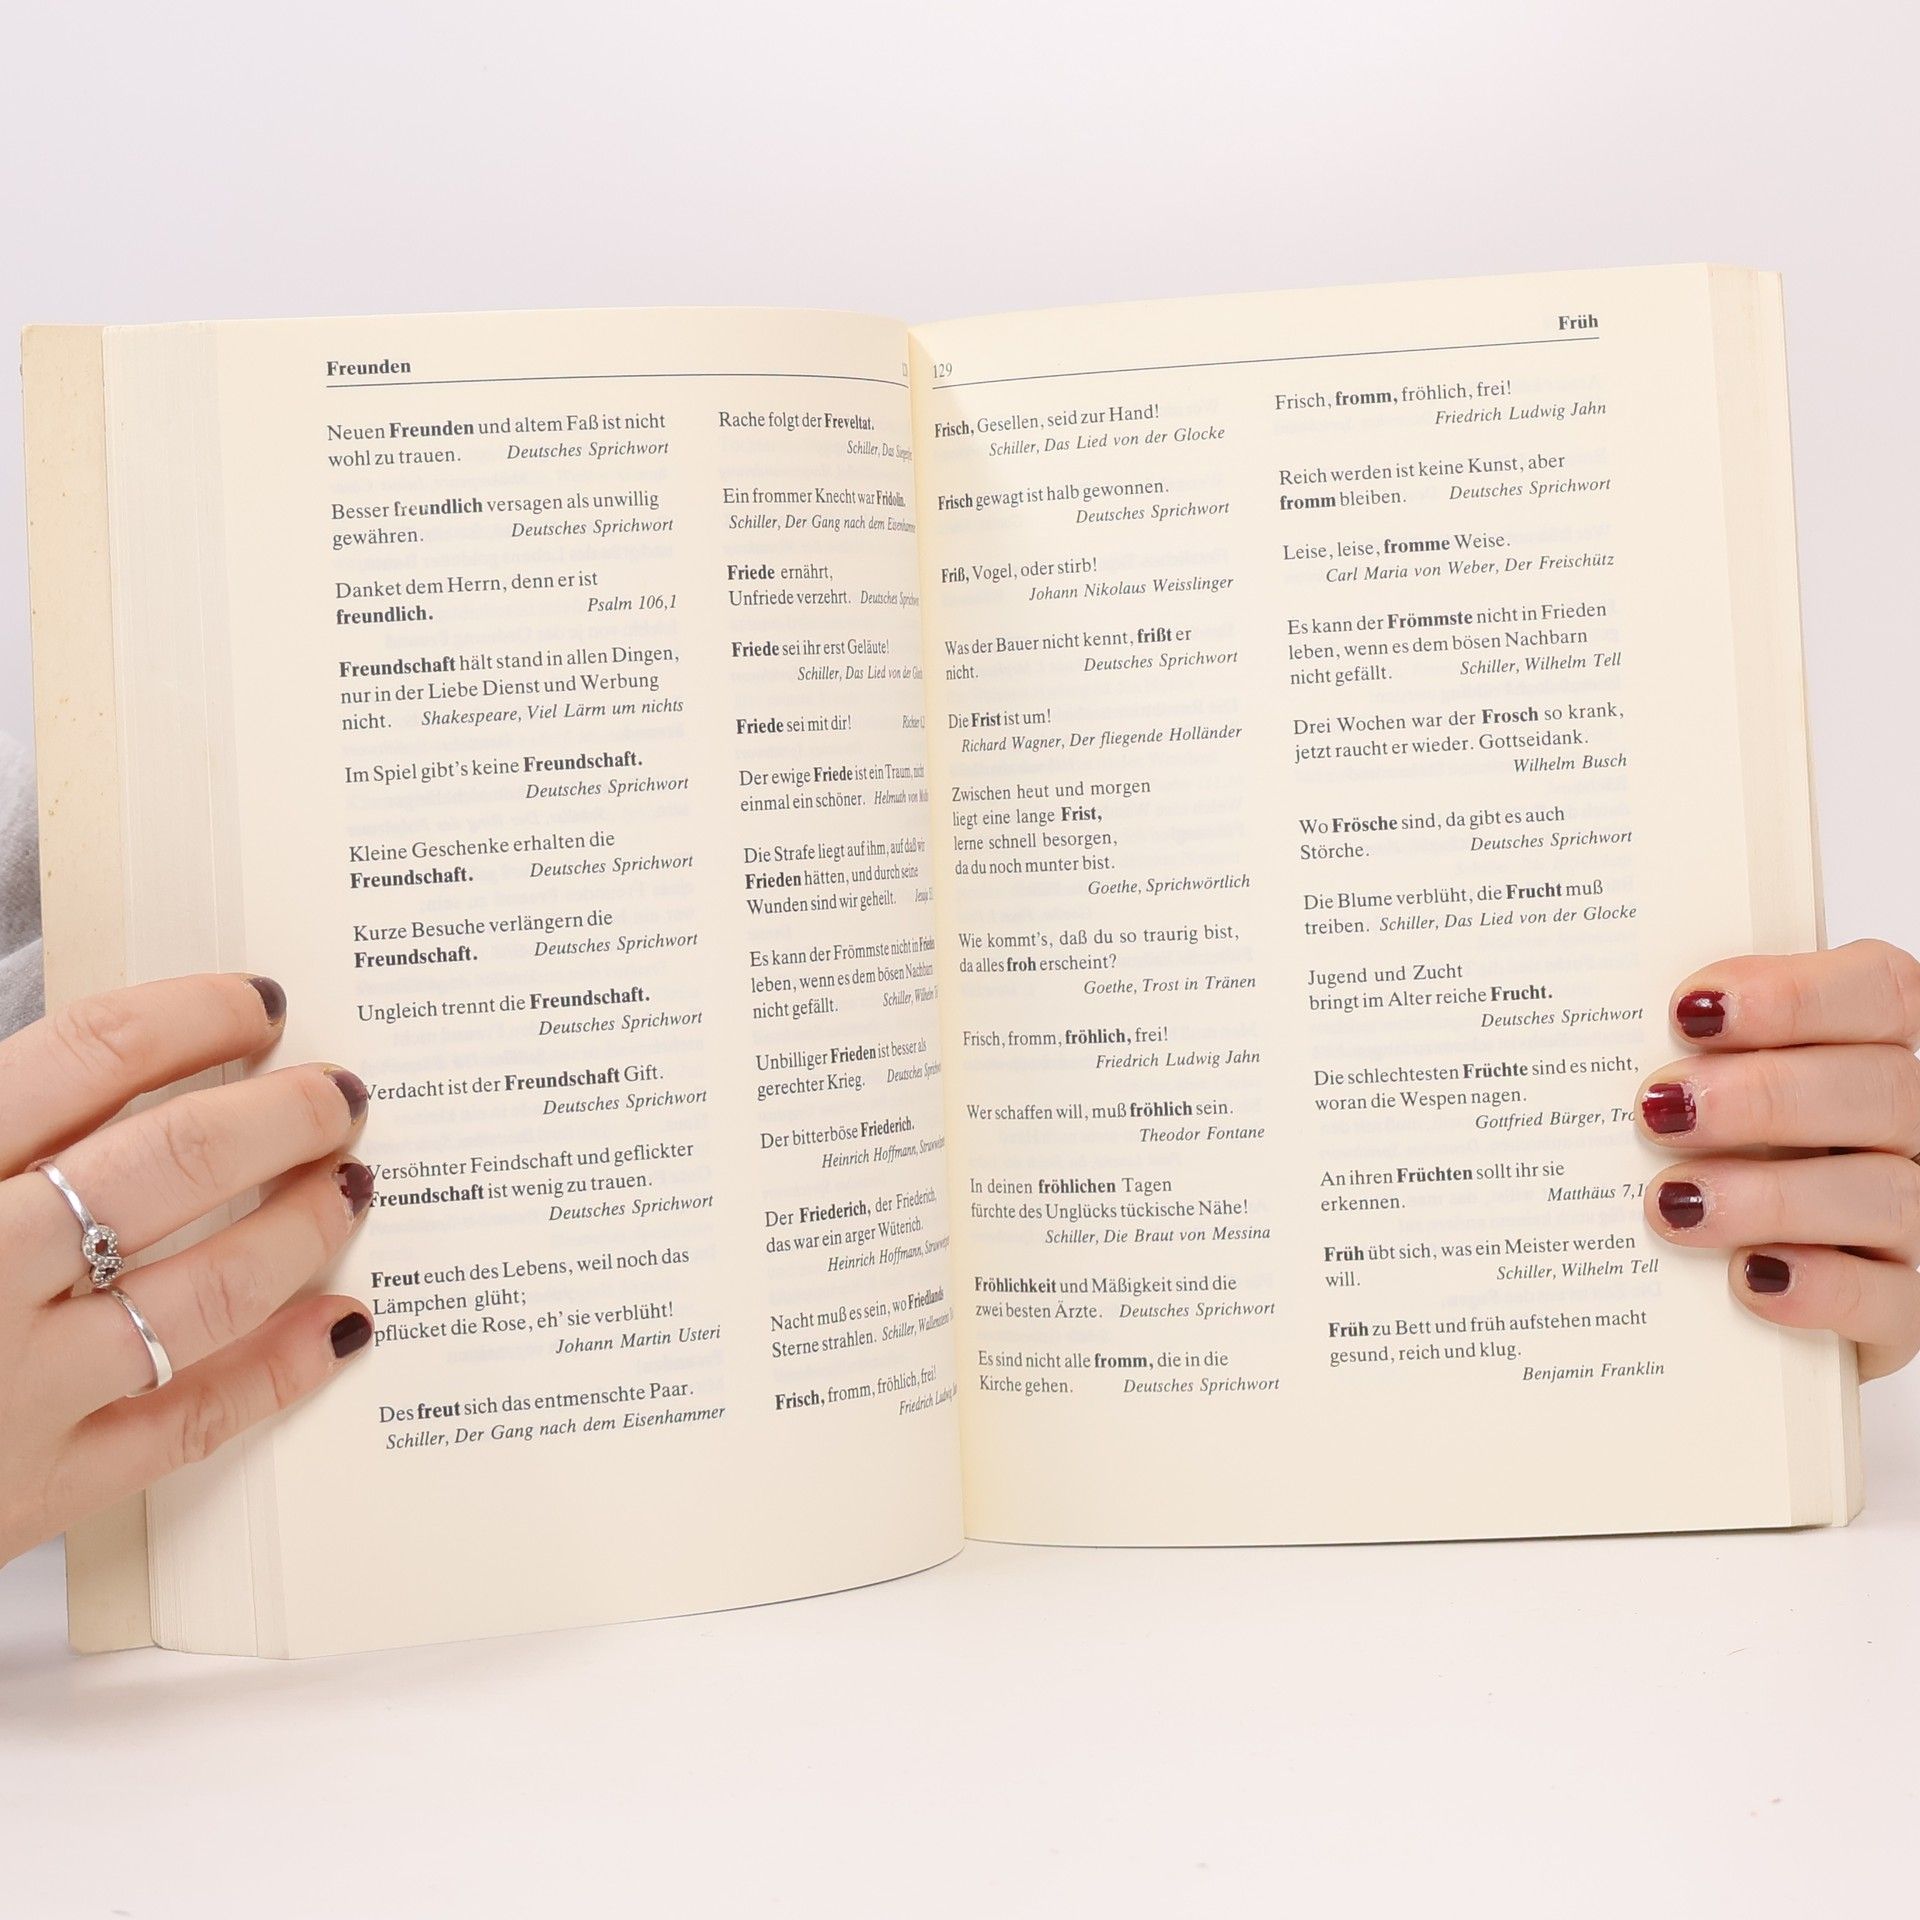 Freunden
Neuen Freunden und altem Faß ist nicht
wohl zu trauen. Deutsches Sprichwort
Besser freundlich versagen als unwillig
gewähren. Deutsches Sprichwort
Danket dem Herrn, denn er ist
freundlich. Psalm 106,1
Freundschaft hält stand in allen Dingen,
nur in der Liebe Dienst und Werbung
nicht. Shakespeare, Viel Lärm um nichts
Im Spiel gibt's keine Freundschaft.
Deutsches Sprichwort
Kleine Geschenke erhalten die
Freundschaft. Deutsches Sprichwort
Kurze Besuche verlängern die
Freundschaft. Deutsches Sprichwort
Ungleich trennt die Freundschaft.
Deutsches Sprichwort
Verdacht ist der Freundschaft Gift.
Deutsches Sprichwort
Versöhnter Feindschaft und geflickter
Freundschaft ist wenig zu trauen.
Deutsches Sprichwort
Freut euch des Lebens, weil noch das
Lämpchen glüht;
pflücket die Rose, eh' sie verblüht!
Johann Martin Usteri
Des freut sich das entmenschte Paar.
Schiller, Der Gang nach dem Eisenhammer
Rache folgt der Freveltat.
Schiller, Das
Ein frommer Knecht war Fridolin.
Schiller, Der Gang nach dem Eisenhammer
Friede ernährt,
Unfriede verzehrt. Deutsches
Friede sei ihr erst Geläute!
Schiller, Das Lied von der
Friede sei mit dir! Richter
Der ewige Friede ist ein Traum, nicht
einmal ein schöner. Helmuth von
Die Strafe liegt auf ihm, auf daß wir
Frieden hätten, und durch seine
Wunden sind wir geheilt. Jesaja
Es kann der Frömmste nicht in Frieden
leben, wenn es dem bösen Nachbarn
nicht gefällt. Schiller, Wilhelm
Unbilliger Frieden ist besser als
gerechter Krieg. Deutsches
Der bitterböse Friederich.
Heinrich Hoffmann,
Der Friederich, der Friederich,
das war ein arger Wüterich.
Heinrich Hoffmann,
Nacht muß es sein, wo Friedlands
Sterne strahlen. Schiller,
Frisch, fromm, fröhlich, frei!
Friedrich Ludwig
129
Früh
Frisch, Gesellen, seid zur Hand!
Schiller, Das Lied von der Glocke
Frisch gewagt ist halb gewonnen.
Deutsches Sprichwort
Friß, Vogel, oder stirb!
Johann Nikolaus Weisslinger
Was der Bauer nicht kennt, frißt er
nicht. Deutsches Sprichwort
Die Frist ist um!
Richard Wagner, Der fliegende Holländer
Zwischen heut und morgen
liegt eine lange Frist,
lerne schnell besorgen,
da du noch munter bist.
Goethe, Sprichwörtlich
Wie kommt's, daß du so traurig bist,
da alles froh erscheint?
Goethe, Trost in Tränen
Frisch, fromm, fröhlich, frei!
Friedrich Ludwig Jahn
Wer schaffen will, muß fröhlich sein.
Theodor Fontane
In deinen fröhlichen Tagen
fürchte des Unglücks tückische Nähe!
Schiller, Die Braut von Messina
Fröhlichkeit und Mäßigkeit sind die
zwei besten Ärzte. Deutsches Sprichwort
Es sind nicht alle fromm, die in die
Kirche gehen. Deutsches Sprichwort
Frisch, fromm, fröhlich, frei!
Friedrich Ludwig Jahn
Reich werden ist keine Kunst, aber
fromm bleiben. Deutsches Sprichwort
Leise, leise, fromme Weise.
Carl Maria von Weber, Der Freischütz
Es kann der Frömmste nicht in Frieden
leben, wenn es dem bösen Nachbarn
nicht gefällt. Schiller, Wilhelm Tell
Drei Wochen war der Frosch so krank,
jetzt raucht er wieder. Gottseidank.
Wilhelm Busch
Wo Frösche sind, da gibt es auch
Störche. Deutsches Sprichwort
Die Blume verblüht, die Frucht muß
treiben. Schiller, Das Lied von der Glocke
Jugend und Zucht
bringt im Alter reiche Frucht.
Deutsches Sprichwort
Die schlechtesten Früchte sind es nicht,
woran die Wespen nagen.
Gottfried Bürger,
An ihren Früchten sollt ihr sie
erkennen. Matthäus
Früh übt sich, was ein Meister werden
will. Schiller, Wilhelm Tell
Früh zu Bett und früh aufstehen macht
gesund, reich und klug.
Benjamin Franklin